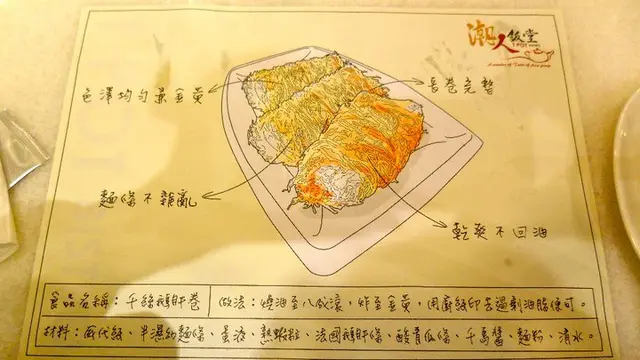 潮人飯堂
A member of Taste of Asia group
色澤均勻呈金黃
長卷完整
麵條不雜亂
乾爽不回油
食品名稱：千絲鵝肝卷
做法：燒油至八成滾，炸至金黃，用廚紙印去過剩油脂便可。
材料：威化紙、半濕幼麵條、蛋液、熟蝦粒、法國鵝肝條、酸青瓜條、千島醬、麵粉、清水。